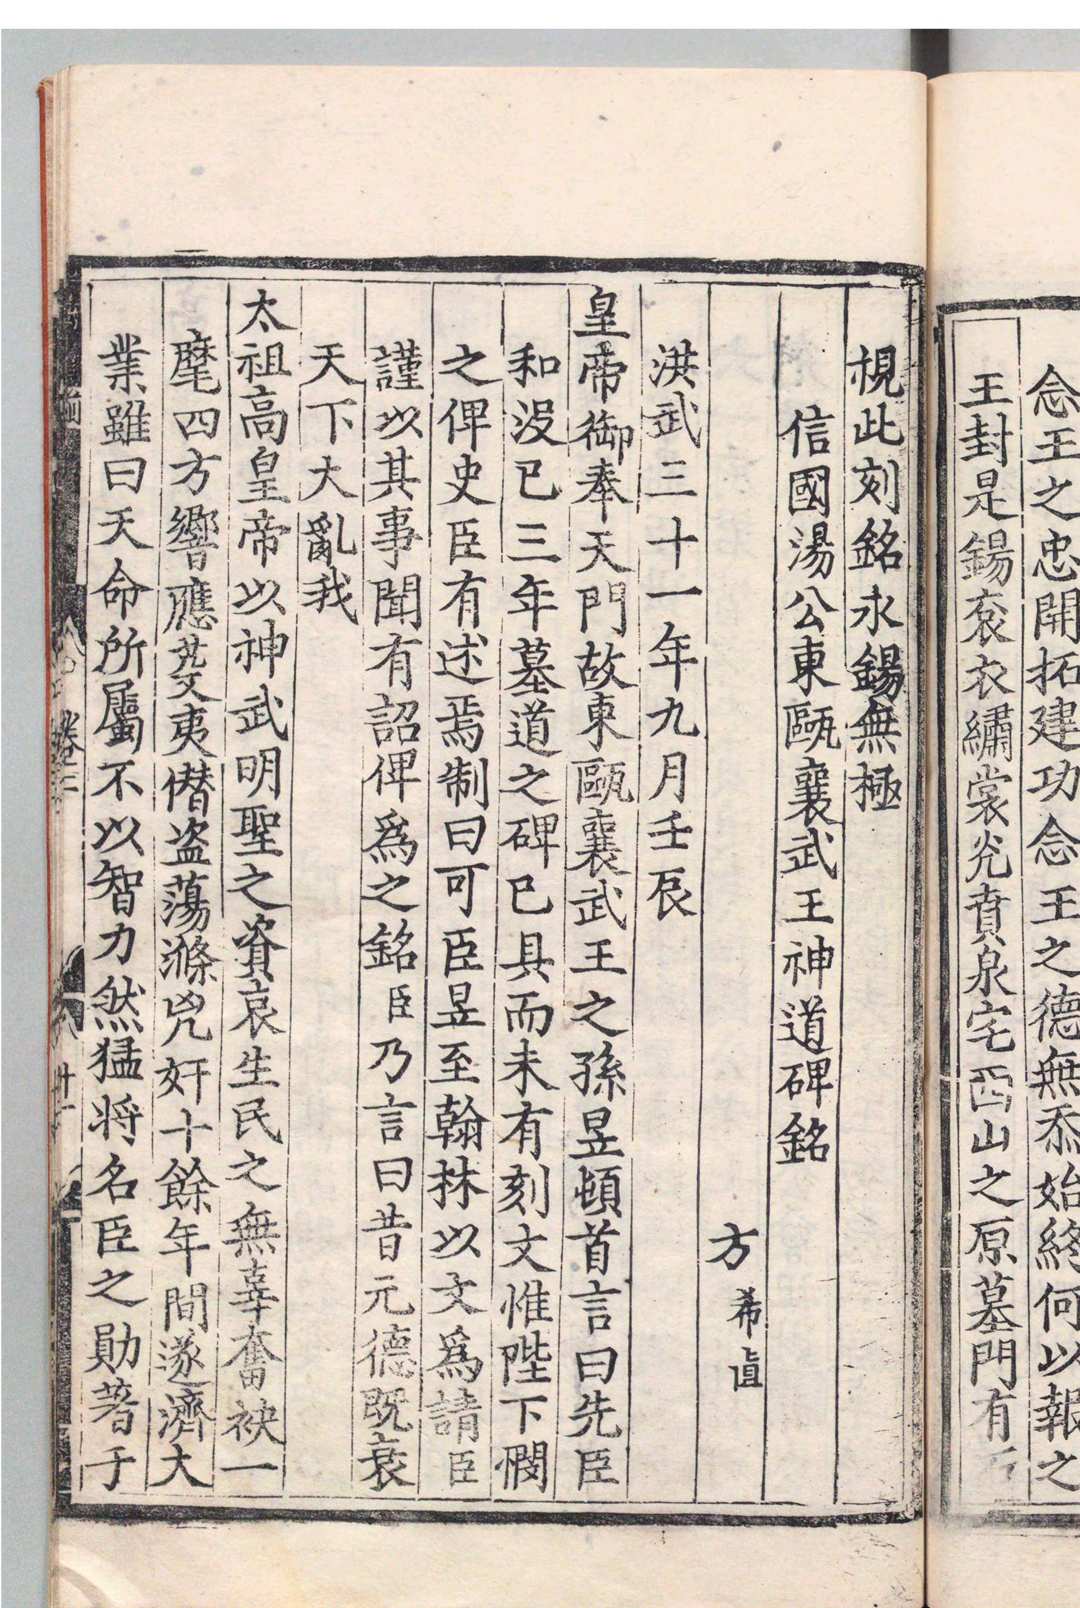 念王之忠開拓建功念王之德無忝始終何以報之
王封是錫衮衣繡裳光賁泉宅西山之原墓門有
䙿此刻銘永錫無極
信國湯公東甌襄武王神道碑銘
方希直
洪武三十一年九月壬辰
皇帝御奉天門故東甌襄武王之孫昱頓首言曰先臣
和沒已三年墓道之碑已具而未有刻文惟陛下憫
之俾史臣有述焉制曰可臣昱至翰林以文爲請臣
謹以其事聞有詔俾爲之銘臣乃言曰昔元德既衰
天下大亂我
太祖高皇帝以神武明聖之資哀生民之無辜奮袂一
麾四方響應芟夷僣盗蕩滌兇奸十餘年間遂濟大
業雖曰天命所屬不以智力然猛将名臣之勛著于
卷三
廿一